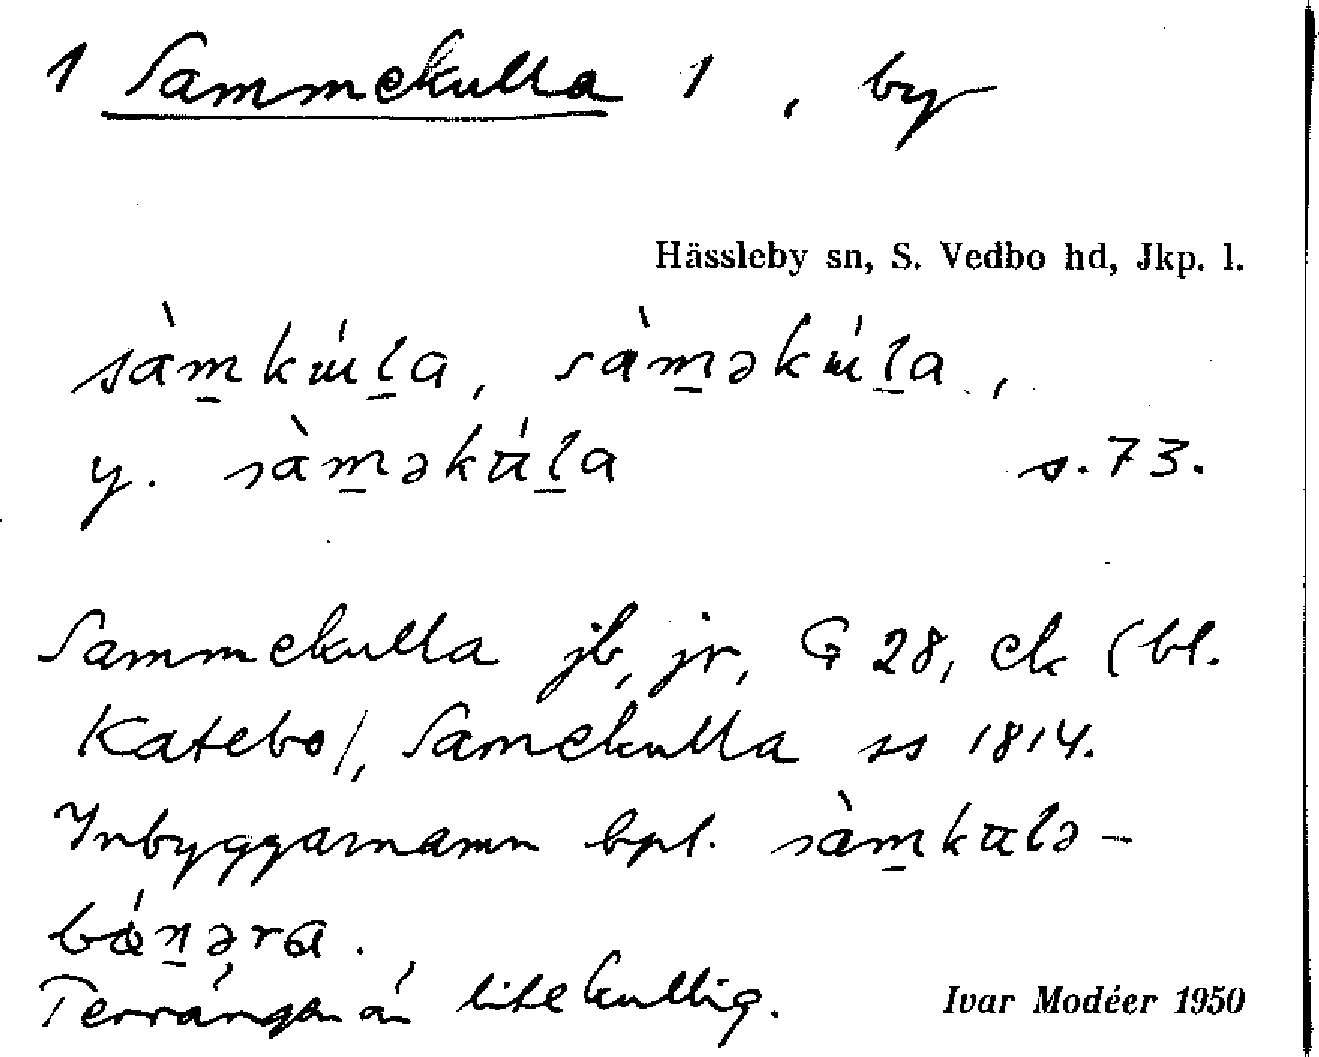 1 Sammekulla 1, by
Hässleby sn, S. Vedbo hd, Jkp. l.
sàm̲kɯ́l̲a, sàm̲əkɯ́l̲a,
y. sàm̲əkúl̲a s. 73.
Sammekulla jb, jr, G 28, ek (bl.
Katebo), Samekulla ss 1814.
Inbyggarnamn bpl. sàm̲kulə-
bón̲əra.
Terrängen är lite kullig.
Ivar Modéer 1950